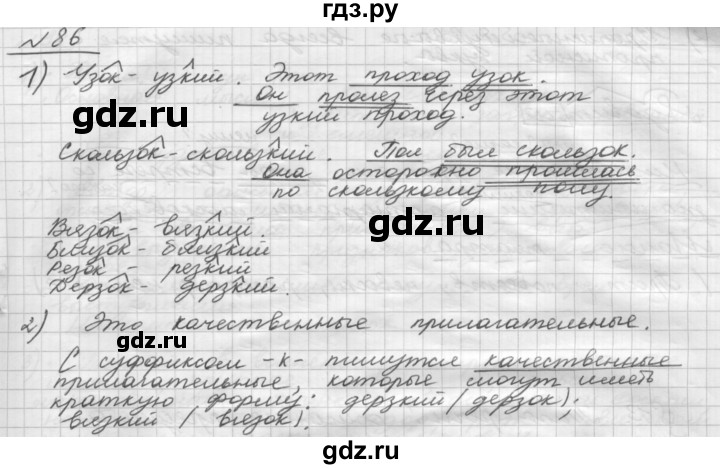 гдз.ру
№ 86
1) Узок - узкий. Этот проход узок.
Он пролез через этот
узкий проход.
Скользок - скользкий. Пол был скользок.
Она осторожно прошлась
по скользкому полу.
Вязок - вязкий.
Близок - близкий
Резок - резкий
Дерзок - дерзкий.
2) Это качественные прилагательные.
С суффиксом -к- пишутся качественные
прилагательные, которые смогут иметь
краткую форму: дерзкий (дерзок);
вязкий (вязок).
gdz.ru
gdz.ru
gdz.ru
gdz.ru
gdz.ru
gdz.ru